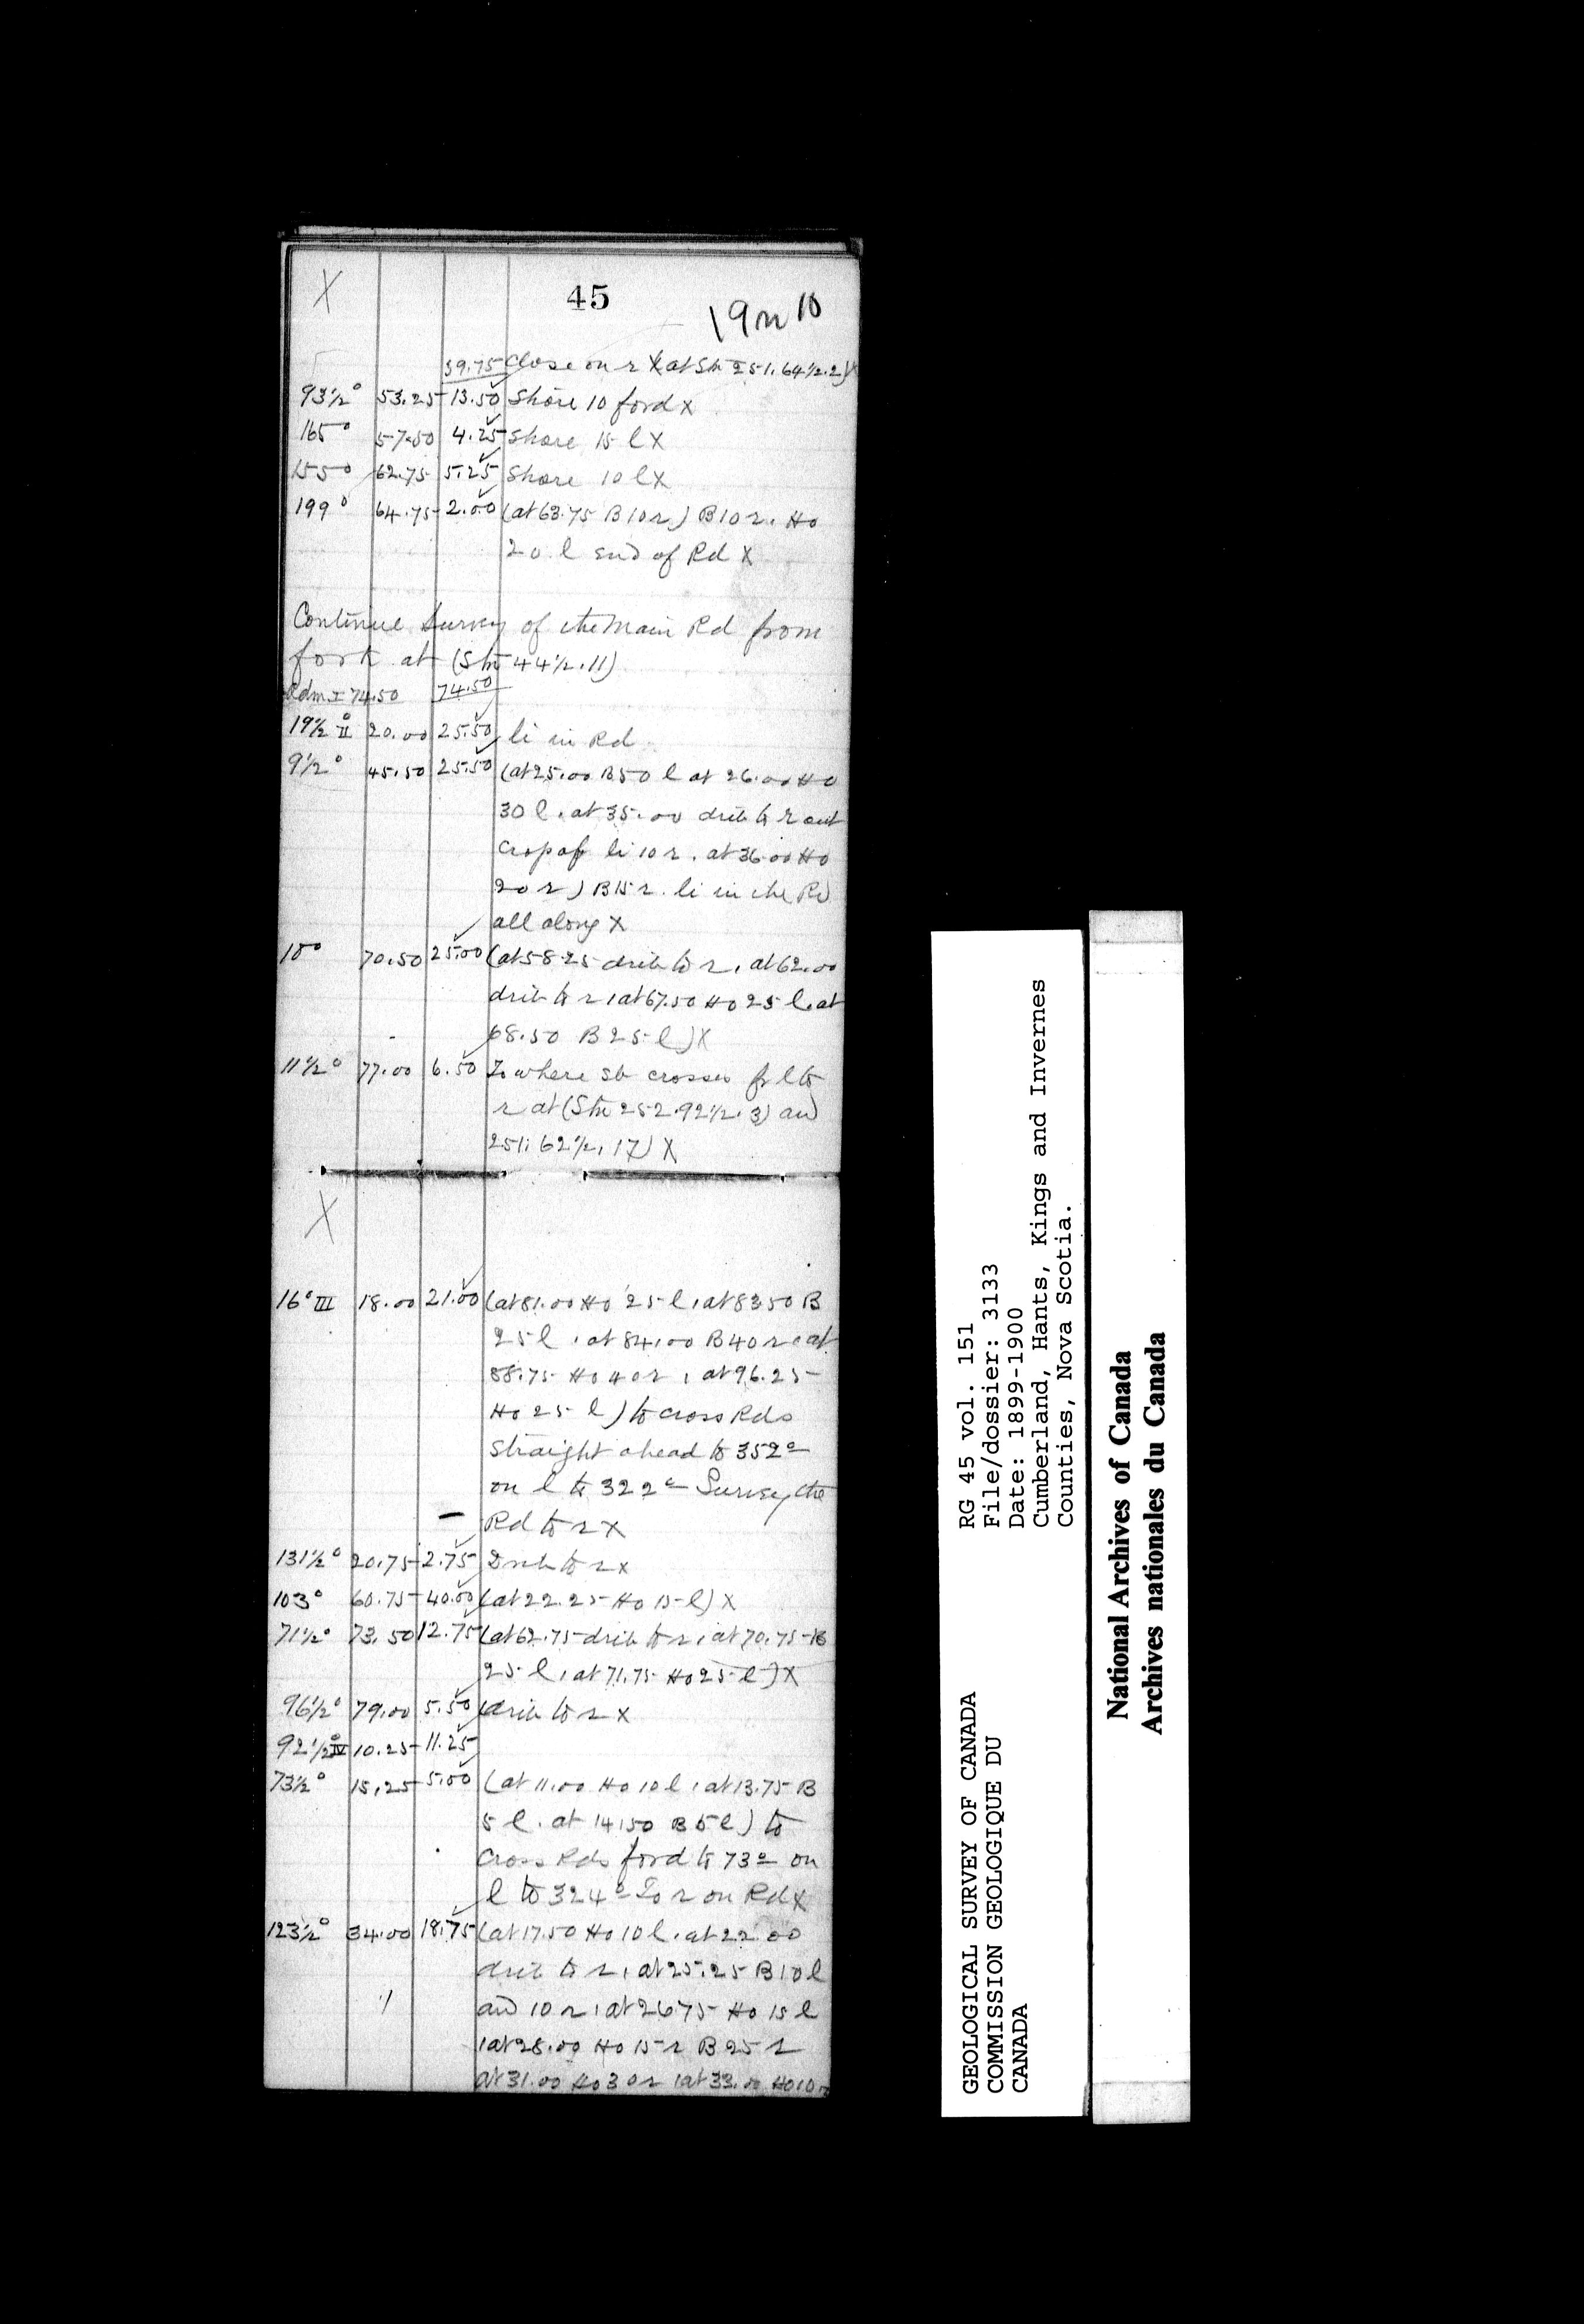 X
45
19 n 10
39.75 Close on r X (at Stn 251. 64 1/2. 2) X
93 1/2° 53.25 13.50 Shore 10 ford X
165° 57.50 4.25 Shore 15 l X
155° 62.75 5.25 Shore 10 l X
199° 64.75 2.00 (at 63.75 B 10 r) B 10 r. Ho
20 l end of Rd X
Continue Survey of the Main Rd from
fork at (Stn 44 1/2. 11)
Rdm I 74.50 74.50
19 1/2° II 20.00 25.50 li in Rd
9 1/2° 45.50 25.50 (at 25.00 B 50 l at 26.00 Ho
30 l. at 35.00 drib to r out
crop of li 10 r. at 36.00 Ho
20 r) B 15 r. li in the Rd
all along X
18° 70.50 25.00 (at 58.25 drib to r, at 62.00
drib to r, at 67.50 Ho 25 l. at
68.50 B 25 l) X
11 1/2° 77.00 6.50 To where sb crosses fr l to
r at (Stn 252. 92 1/2. 3) and
251. 62 1/2. 17) X
X
16° III 18.00 21.00 (at 81.00 Ho 25 l, at 83.50 B
25 l, at 84.00 B 40 r, at
88.75 Ho 40 r, at 96.25
Ho 25 l) to cross Rds
straight ahead to 352°
on l to 322° Survey the
Rd to r X
131 1/2° 20.75 2.75 Drib to r X
103° 60.75 40.00 (at 22.25 Ho 15 l) X
71 1/2° 73.50 12.75 (at 62.75 drib to r, at 70.75 B
25 l, at 71.75 Ho 25 l) X
96 1/2° 79.00 5.50 drib to r X
92 1/2° IV 10.25 11.25
73 1/2° 15.25 5.00 (at 11.00 Ho 10 l, at 13.75 B
5 l. at 14.50 B 5 l) to
Cross Rds ford to 73° on
l to 324° To r on Rd X
123 1/2° 34.00 18.75 (at 17.50 Ho 10 l. at 22.00
drib to r, at 25.25 B 10 l
and 10 r, at 26.75 Ho 15 l
, at 28.00 Ho 15 r B 25 r
at 31.00 Ho 30 r, at 33.00 Ho 10
GEOLOGICAL SURVEY OF CANADA
COMMISSION GEOLOGIQUE DU
CANADA
RG 45 vol. 151
File/dossier: 3133
Date: 1899-1900
Cumberland, Hants, Kings and Invernes
Counties, Nova Scotia.
National Archives of Canada
Archives nationales du Canada